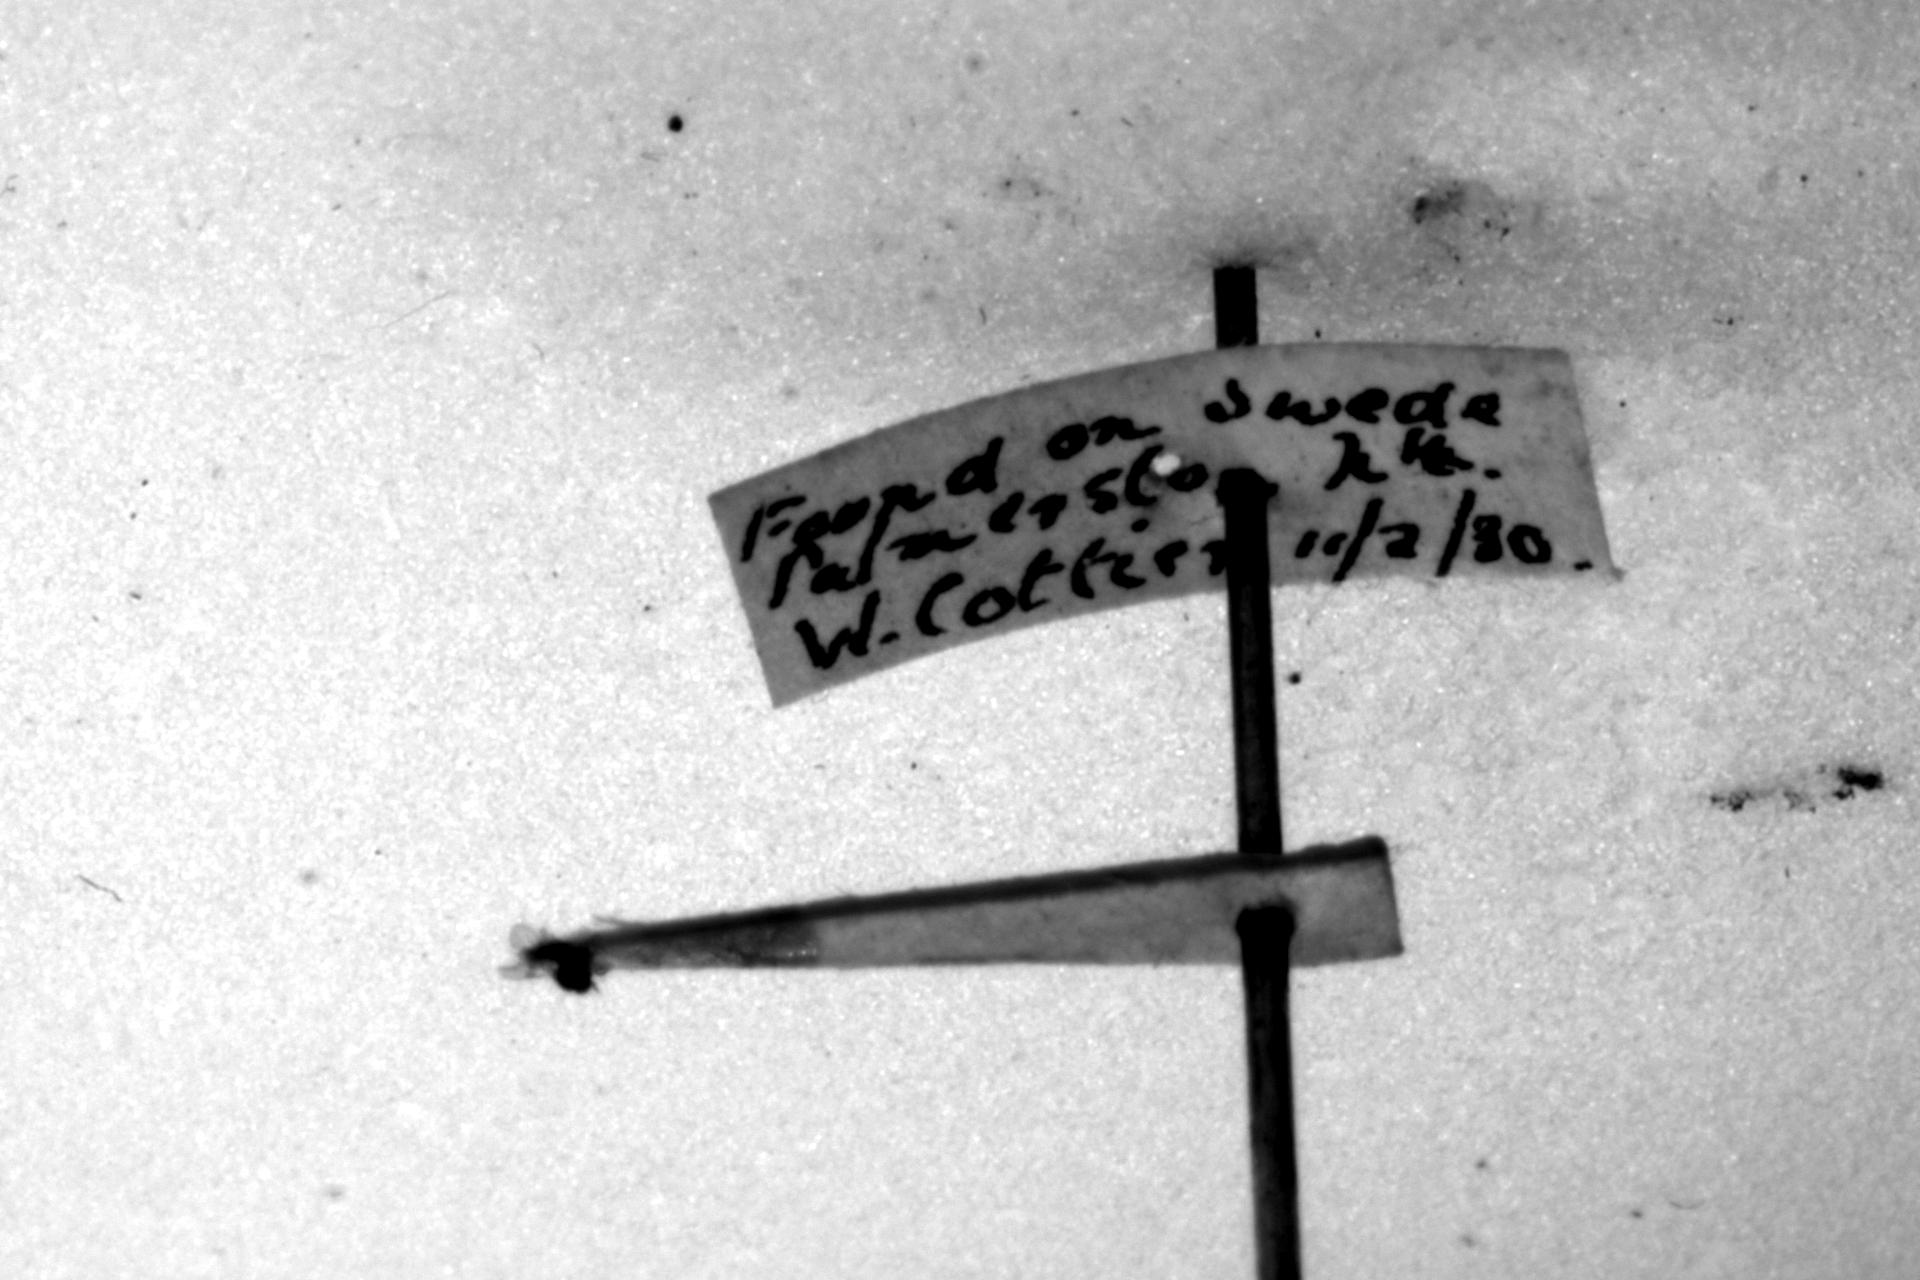 Found on Swede
Palmerston Nth.
W. Cottier 11/2/30.